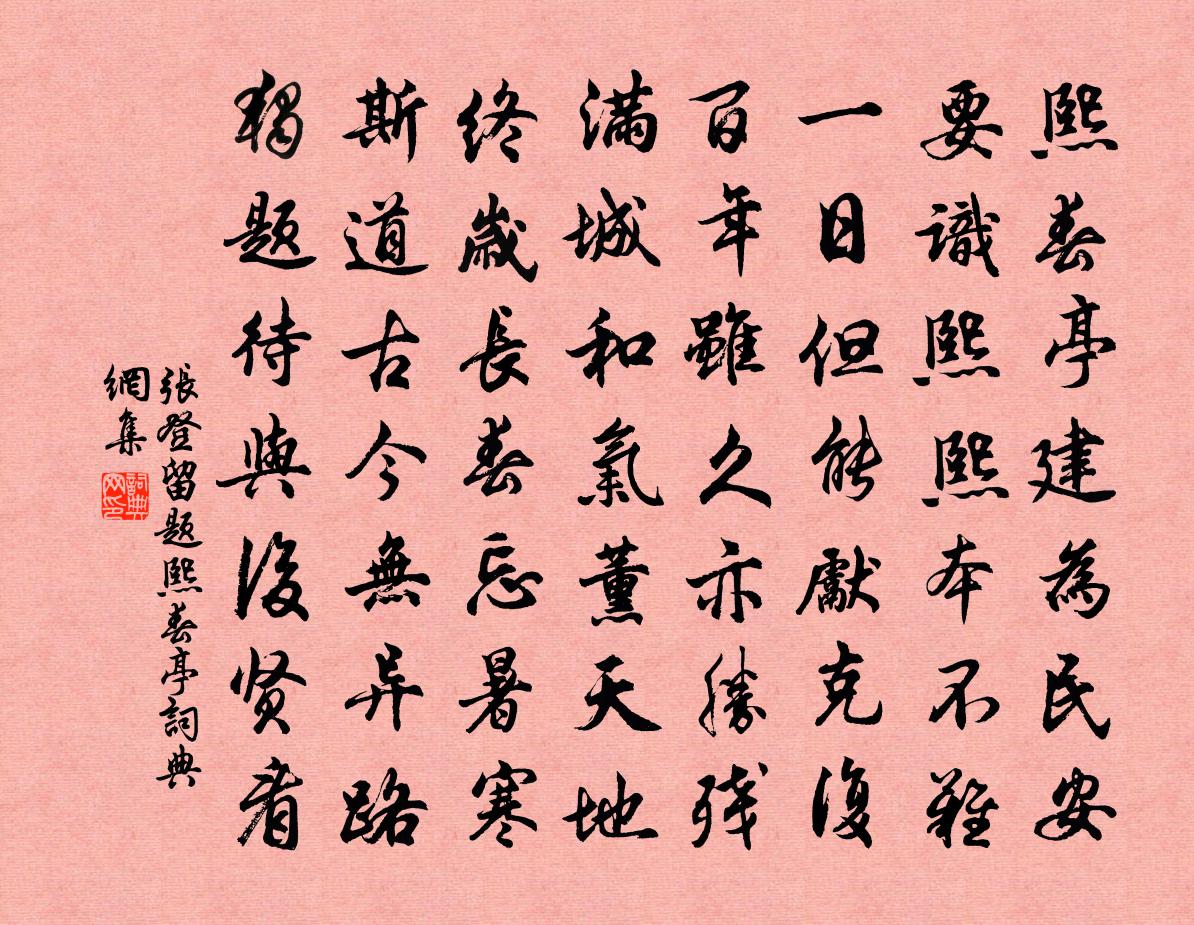 熙春亭建為民安
要識熙熙本不難
一日但能獻克復
百年雖久亦勝殘
滿城和氣薰天地
終歲長春忘暑寒
斯道古今無异路
獨題待與後贤看
張登留题熙春亭詞典
網集
詞典
网印